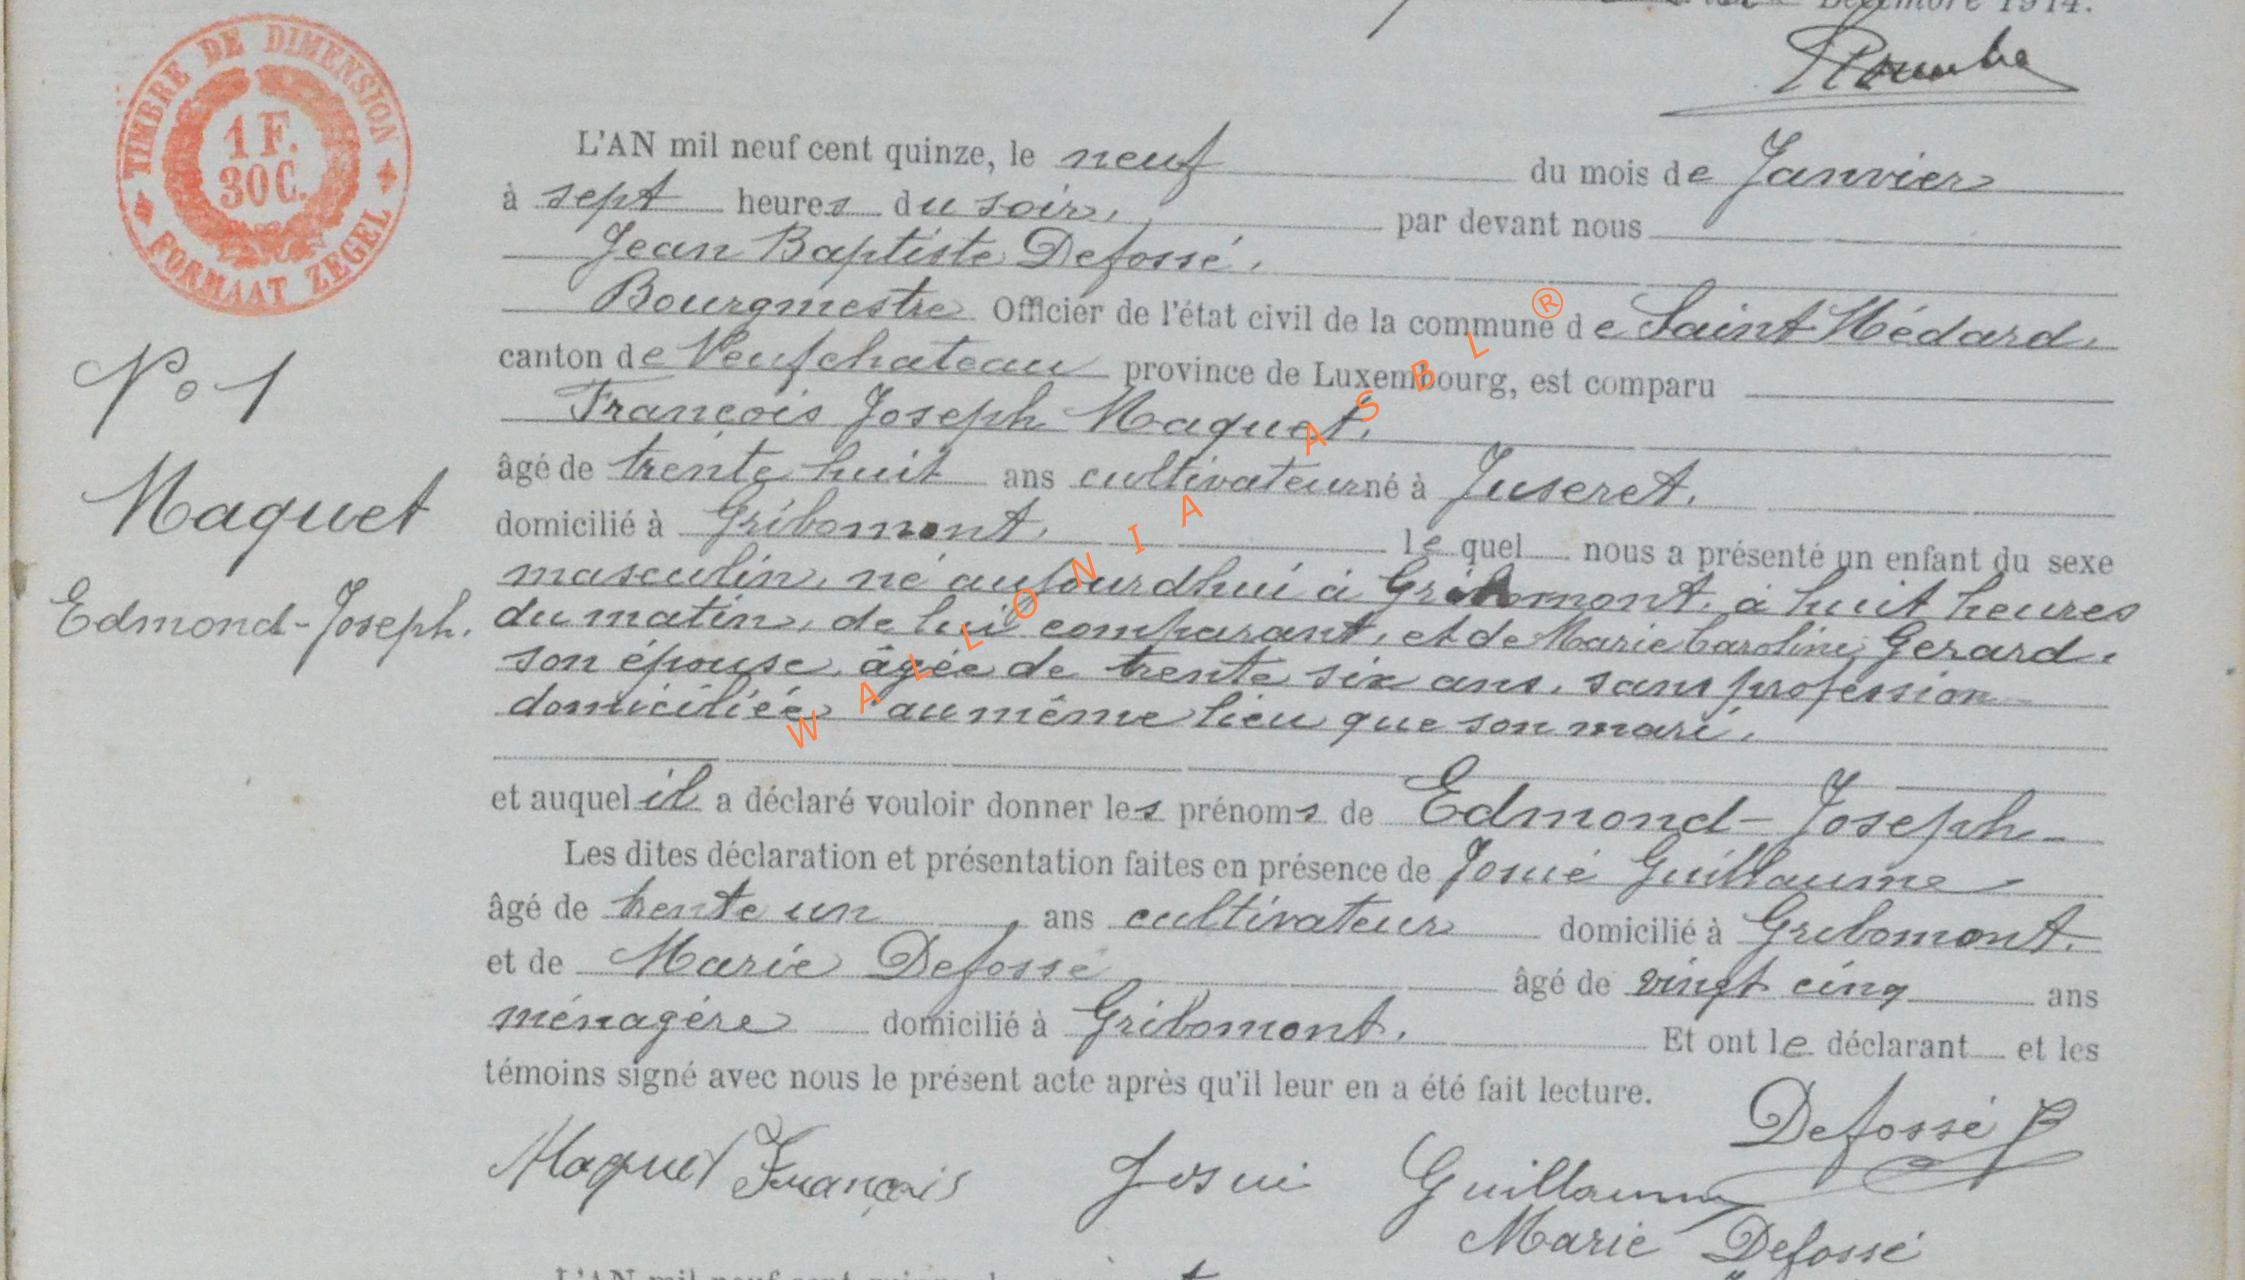 Décembre 1914.
TIMBRE DE DIMENSION
1 F.
30 C.
FORMAAT ZEGEL
L'AN mil neuf cent quinze, le neuf du mois de Janvier
à sept heures du soir, par devant nous
Jean Baptiste Defossé,
Bourgmestre Officier de l'état civil de la commune de Saint Médard,
canton de Neufchateau province de Luxembourg, est comparu
François Joseph Maquet,
âgé de trente huit ans cultivateur né à Juseret,
domicilié à Gribomont, lequel nous a présenté un enfant du sexe
masculin, né aujourdhui à Gribomont, à huit heures
du matin, de lui comparant, et de Marie Caroline Gerard,
son épouse, âgée de trente six ans, sans profession
domiciliée au même lieu que son mari,
et auquel il a déclaré vouloir donner les prénoms de Edmond-Joseph
Les dites déclaration et présentation faites en présence de Josué Guillaume
âgé de trente un ans cultivateur domicilié à Gribomont.
et de Marie Defossé âgé de vingt cinq ans
ménagère domicilié à Gribomont. Et ont le déclarant et les
témoins signé avec nous le présent acte après qu'il leur en a été fait lecture.
N° 1
Maquet
Edmond-Joseph.
Defossé
Maquet François Josué Guillaume
Marie Defossé
L'AN mil neuf cent quinze
WALLONIA ASBL ®